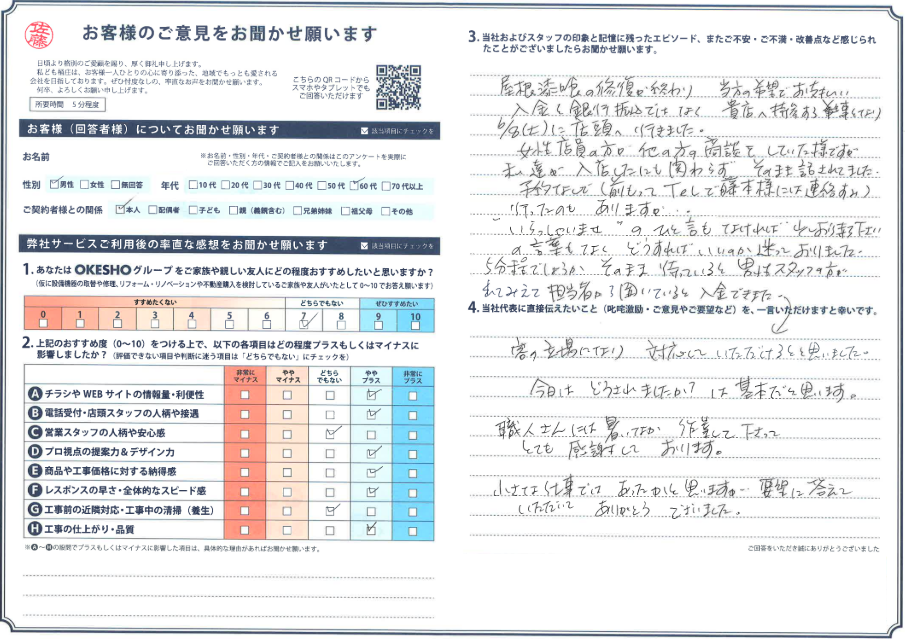 佐藤
お客様のご意見をお聞かせ願います
日頃より格別のご愛顧を賜り、厚く御礼申し上げます。
私ども桶庄は、お客様一人ひとりの心に寄り添った、地域でもっとも愛される
会社を目指しております。ぜひ忖度なしの、率直なお声をお聞かせ願います。
何卒、よろしくお願い申し上げます。
所要時間 5分程度
こちらのQRコードから
スマホやタブレットでも
ご回答いただけます
お客様（回答者様）についてお聞かせ願います
該当項目にチェックを
お名前
※お名前・性別・年代・ご契約者様との関係はこのアンケートを実際に
ご回答いただく方の情報でご記入をお願いいたします。
性別 男性 女性 無回答 年代 10代 20代 30代 40代 50代 60代 70代以上
ご契約者様との関係 本人 配偶者 子ども 親（義親含む） 兄弟姉妹 祖父母 その他
弊社サービスご利用後の率直な感想をお聞かせ願います
該当項目にチェックを
1. あなたは OKESHO グループをご家族や親しい友人にどの程度おすすめしたいと思いますか？
（仮に設備機器の取替や修理、リフォーム・リノベーションや不動産購入を検討しているご家族や友人がいたとして0〜10でお答え願います）
すすめたくない どちらでもない ぜひすすめたい
0 1 2 3 4 5 6 7 8 9 10
2. 上記のおすすめ度（0〜10）をつける上で、以下の各項目はどの程度プラスもしくはマイナスに
影響しましたか？（評価できない項目や判断に迷う項目は「どちらでもない」にチェックを）
非常にマイナス ややマイナス どちらでもない ややプラス 非常にプラス
A チラシやWEBサイトの情報量・利便性
B 電話受付・店頭スタッフの人柄や接遇
C 営業スタッフの人柄や安心感
D プロ視点の提案力＆デザイン力
E 商品や工事価格に対する納得感
F レスポンスの早さ・全体的なスピード感
G 工事前の近隣対応・工事中の清掃（養生）
H 工事の仕上がり・品質
※A〜Hの設問でプラスもしくはマイナスに影響した項目は、具体的な理由があればお聞かせ願います。
3. 当社およびスタッフの印象と記憶に残ったエピソード、またご不安・ご不満・改善点など感じられ
たことがございましたらお聞かせ願います。
屋根漆喰の修復が終わり 当方の希望でお支払い
入金を銀行振込ではなく 貴店へ持参する事になり
6/8(土)に店頭へ行きました。
女性店員の方が他の方の商談をしていた様ですが
私達が入店したにも関わらず そのまま話されてました。
予約なしで(前もってTelで藤本様には連絡すみ)
行ったのも ありますが…
"いらっしゃいませ"のひと言もなければ 少しお待ち下さい
の言葉もなく どうすればいいのか迷っておりました。
5分程でしょうか そのまま待っていると男性スタッフの方が
出てみえて担当者から聞いていると入金できました。
4. 当社代表に直接伝えたいこと（叱咤激励・ご意見やご要望など）を、一言いただけますと幸いです。
客の立場になり 対応していただけるとと思いました。
今日は どうされましたか？は基本だと思います。
職人さんには暑いなか 作業して下さって
とても 感謝して おります。
小さな仕事では あったかと思いますが 要望に答えて
いただいて ありがとう ございました。
ご回答をいただき誠にありがとうございました